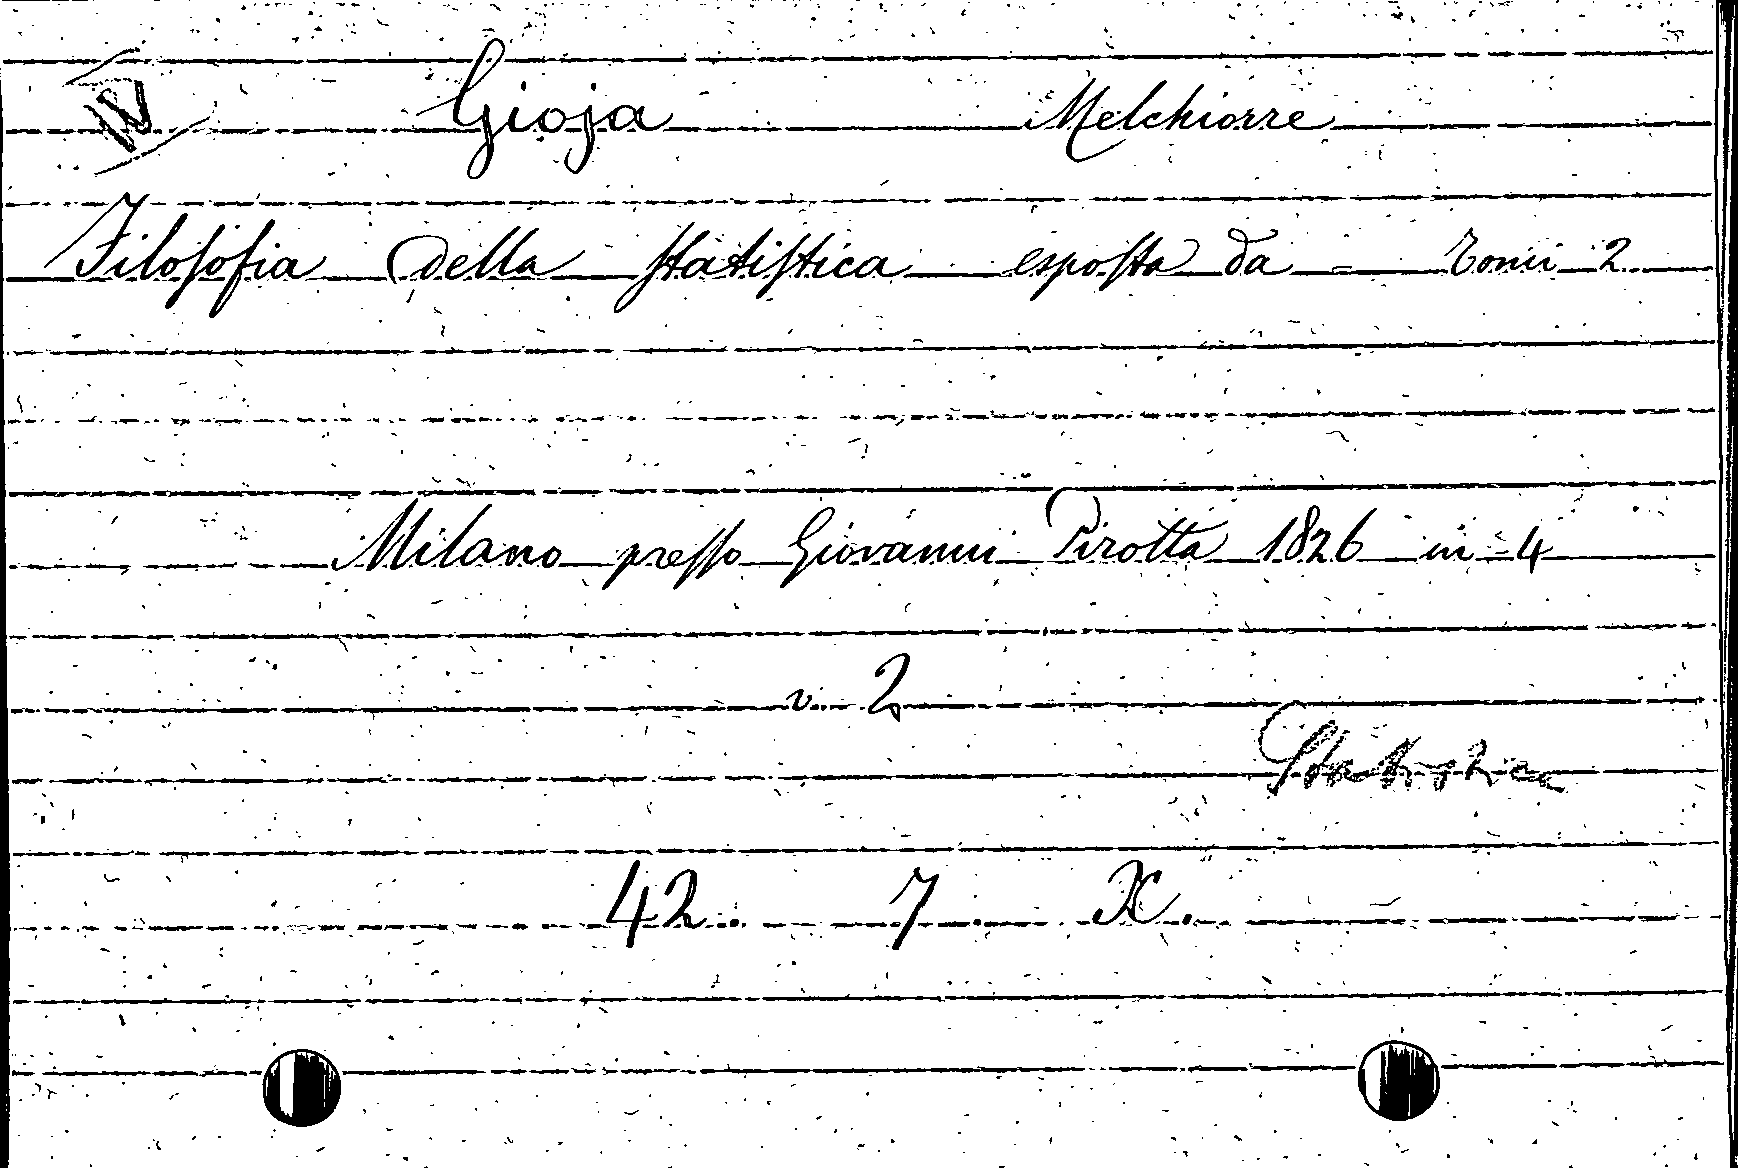 IV Gioja Melchiorre
Filosofia della statistica esposta da - Tomi 2
Milano presso Giovanni Pirotta 1826 in-4
v. 2
Statistica
42. 7. X.